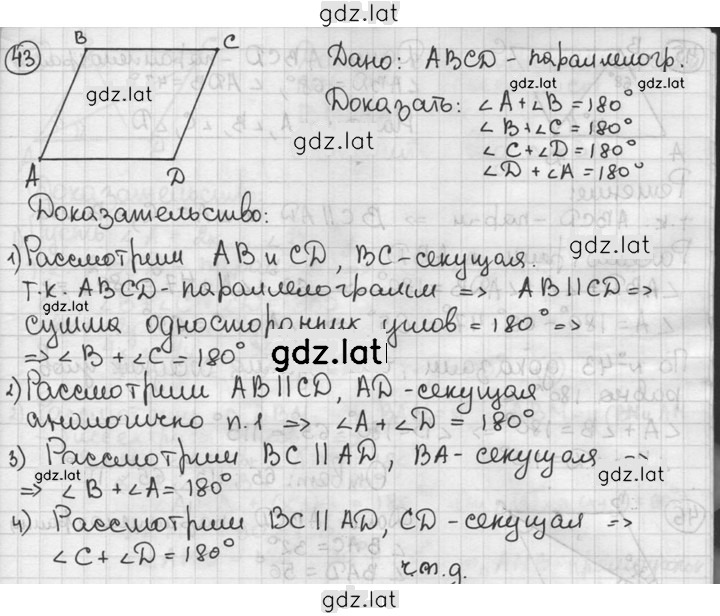 gdz.lat
43
B C
gdz.lat
A D
Дано: ABCD - параллелогр.
gdz.lat gdz.lat
Доказать: ∠A+∠B=180°
∠B+∠C=180°
∠C+∠D=180°
gdz.lat
∠D+∠A=180°
Доказательство:
gdz.lat
1) Рассмотрим AB и CD, BC-секущая.
т.к. ABCD-параллелограмм => AB||CD=>
gdz.lat
сумма односторонних углов = 180° =>
=> ∠B+∠C=180°
gdz.lat
2) Рассмотрим AB||CD, AD-секущая
gdz.lat
аналогично п.1 => ∠A+∠D=180°
3) Рассмотрим BC||AD, BA-секущая
gdz.lat gdz.lat
=> ∠B+∠A=180°
4) Рассмотрим BC||AD, CD-секущая =>
∠C+∠D=180°
ч.т.д.
gdz.lat